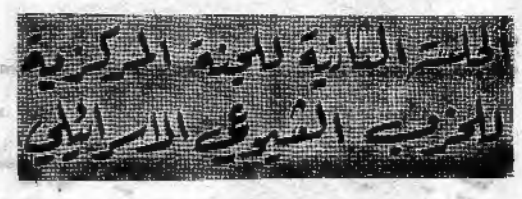 الجلسة الثانية للجنة المركزية
للحزب الشيوعي الاسرائيلي